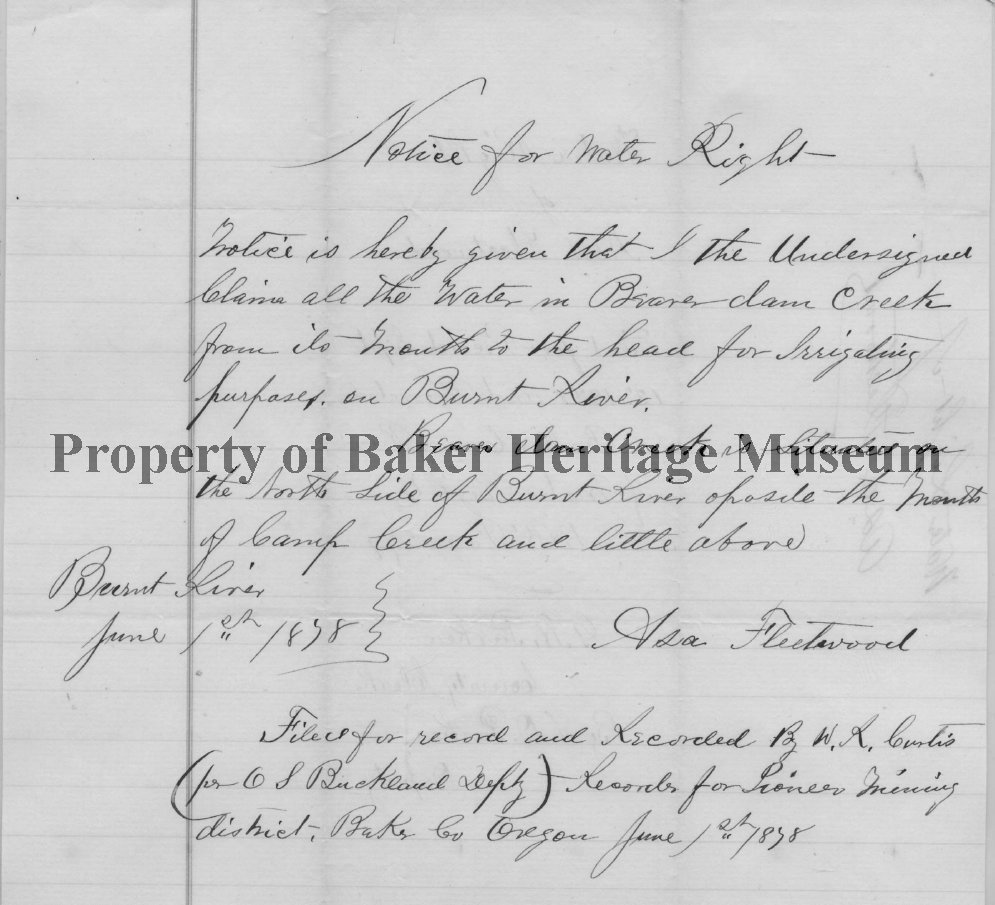 Notice for Water Right
Notice is hereby given that I the Undersigned
Claim all the Water in Beaver dam Creek
from its Mouth to the head for Irrigating
purposes. on Burnt River.
Beaver dam Creek is Situated on
Property of Baker Heritage Museum
the North Side of Burnt River oposite the Mouth
of Camp Creek and little above
Burnt River
June 1st 1878
Asa Fleetwood
Filed for record and Recorded By W. R. Curtis
(per O S Buckland Depty) Recorder for Pioneer Mining
district. Baker Co Oregon June 1st 1878